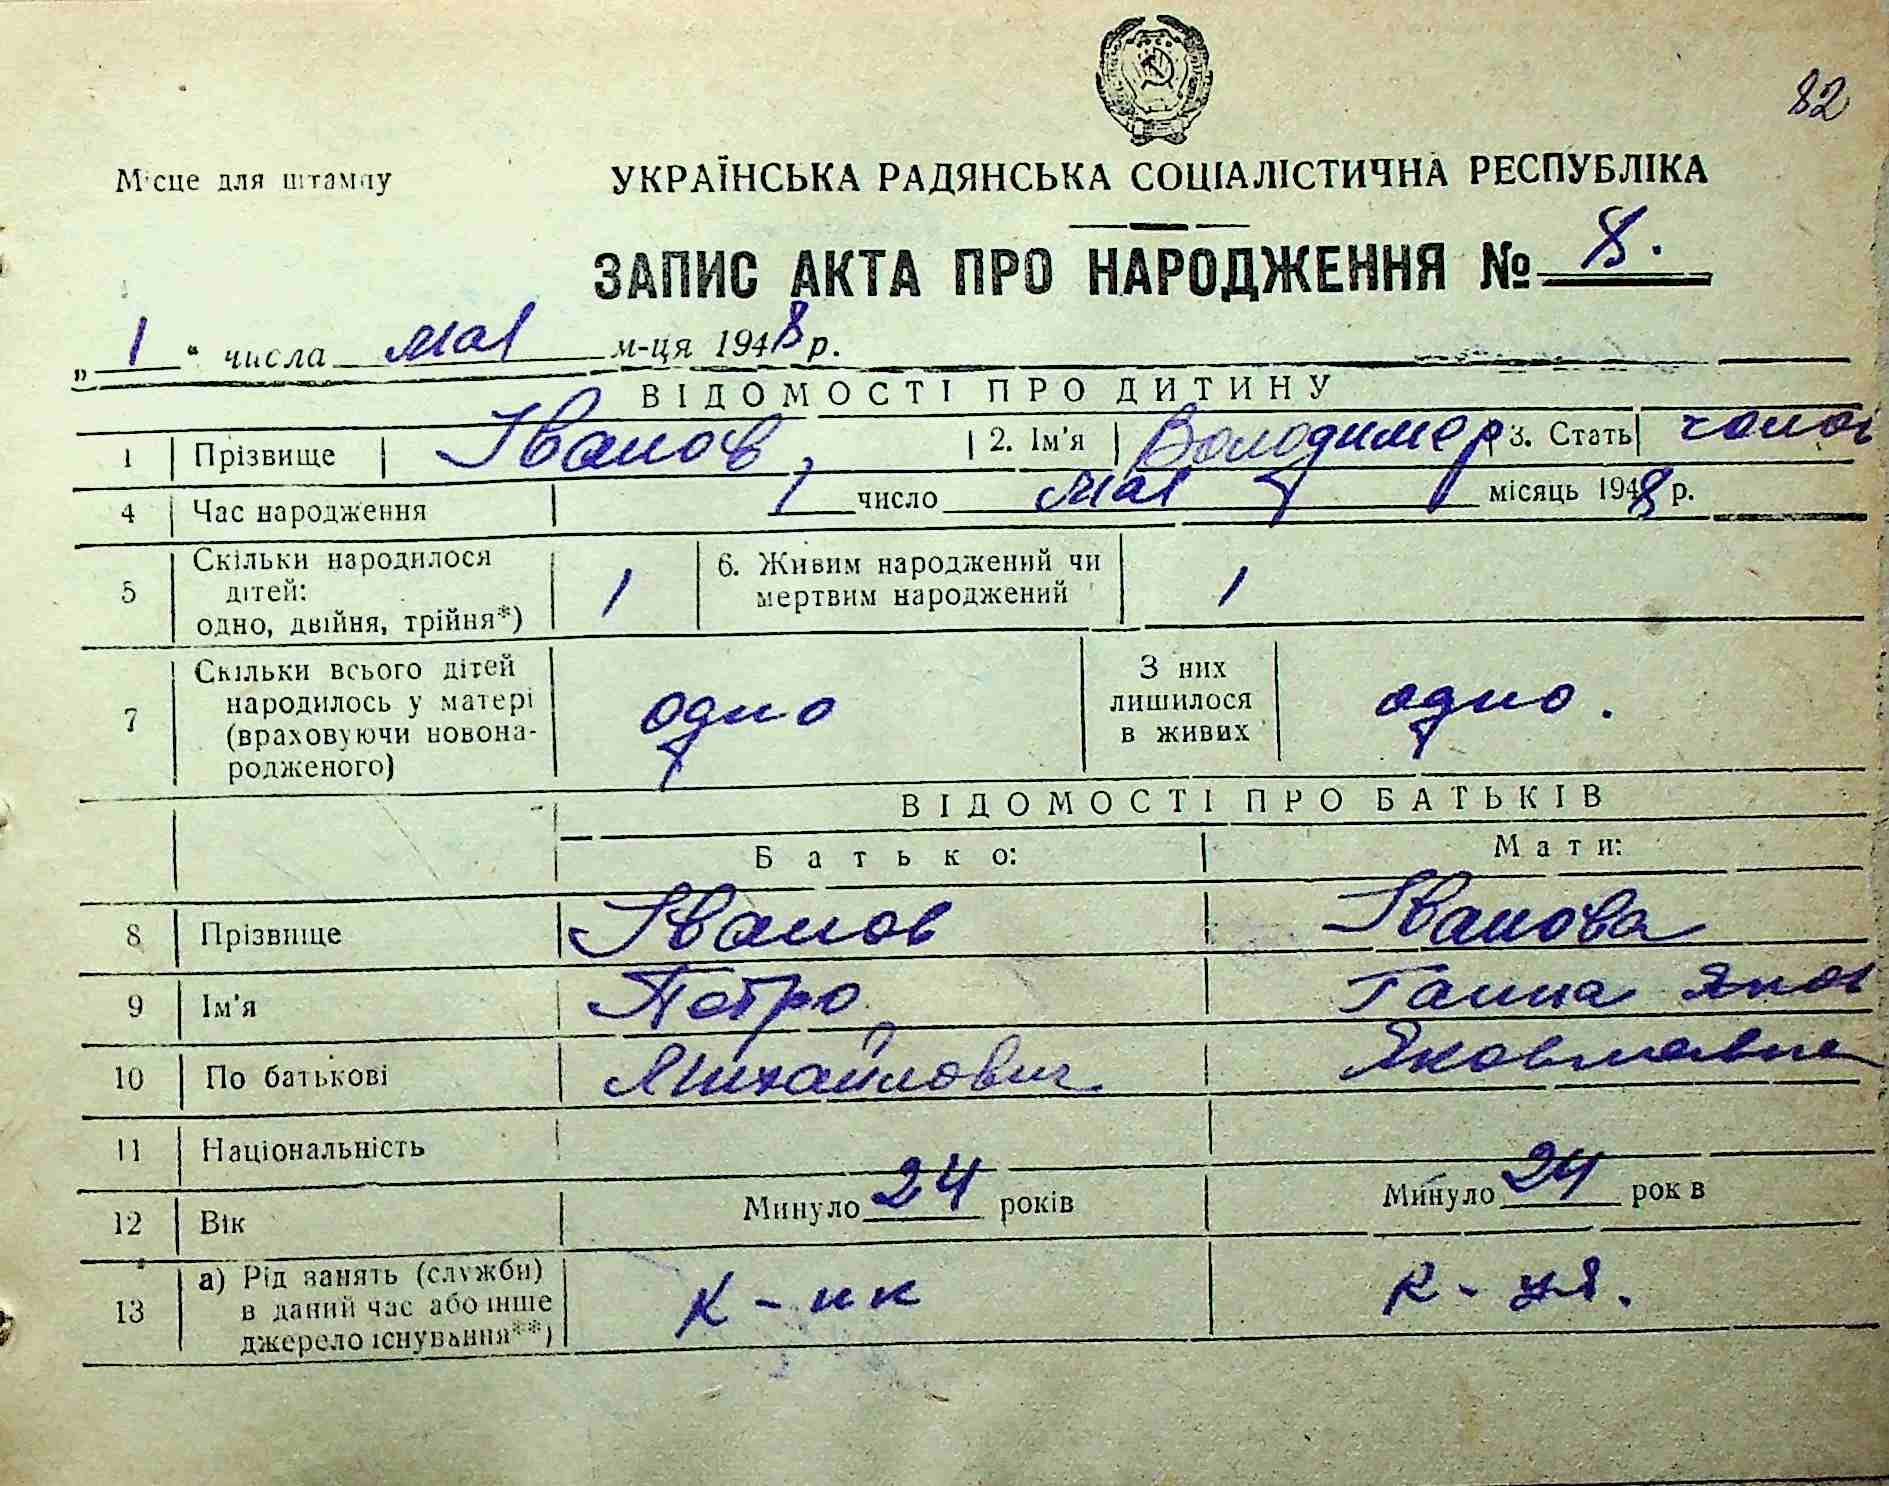 82
Місце для штампу
УКРАЇНСЬКА РАДЯНСЬКА СОЦІАЛІСТИЧНА РЕСПУБЛІКА
ЗАПИС АКТА ПРО НАРОДЖЕННЯ № 8.
„1“ числа мая м-ця 1948 р.
ВІДОМОСТІ ПРО ДИТИНУ
1 Прізвище Іванов, 2. Ім'я Володимер 3. Стать чолов
4 Час народження 1 число мая місяць 1948 р.
5 Скільки народилося дітей: одно, двійня, трійня*) 1 6. Живим народжений чи мертвим народжений 1
7 Скільки всього дітей народилось у матері (враховуючи новонародженого) одно З них лишилося в живих одно.
ВІДОМОСТІ ПРО БАТЬКІВ
Батько: Мати:
8 Прізвище Іванов Іванова
9 Ім'я Петро Ганна Яков
10 По батькові Михайлович Яковлевна
11 Національність
12 Вік Минуло 24 років Минуло 24 років
13 а) Рід занять (служби) в даний час або інше джерело існування**) К-ник к-ця.